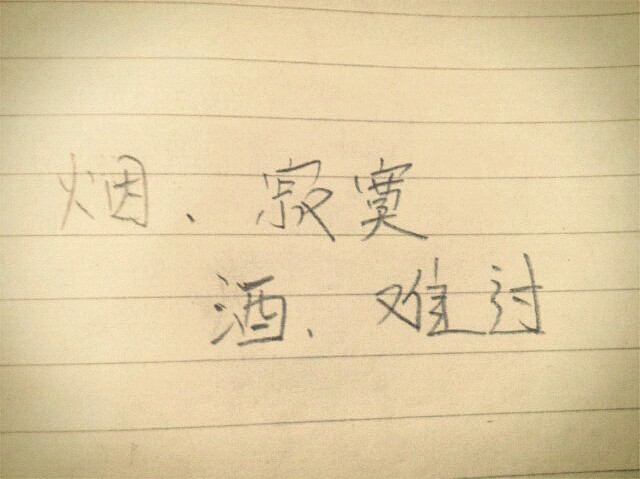 烟、寂寞
酒、难过